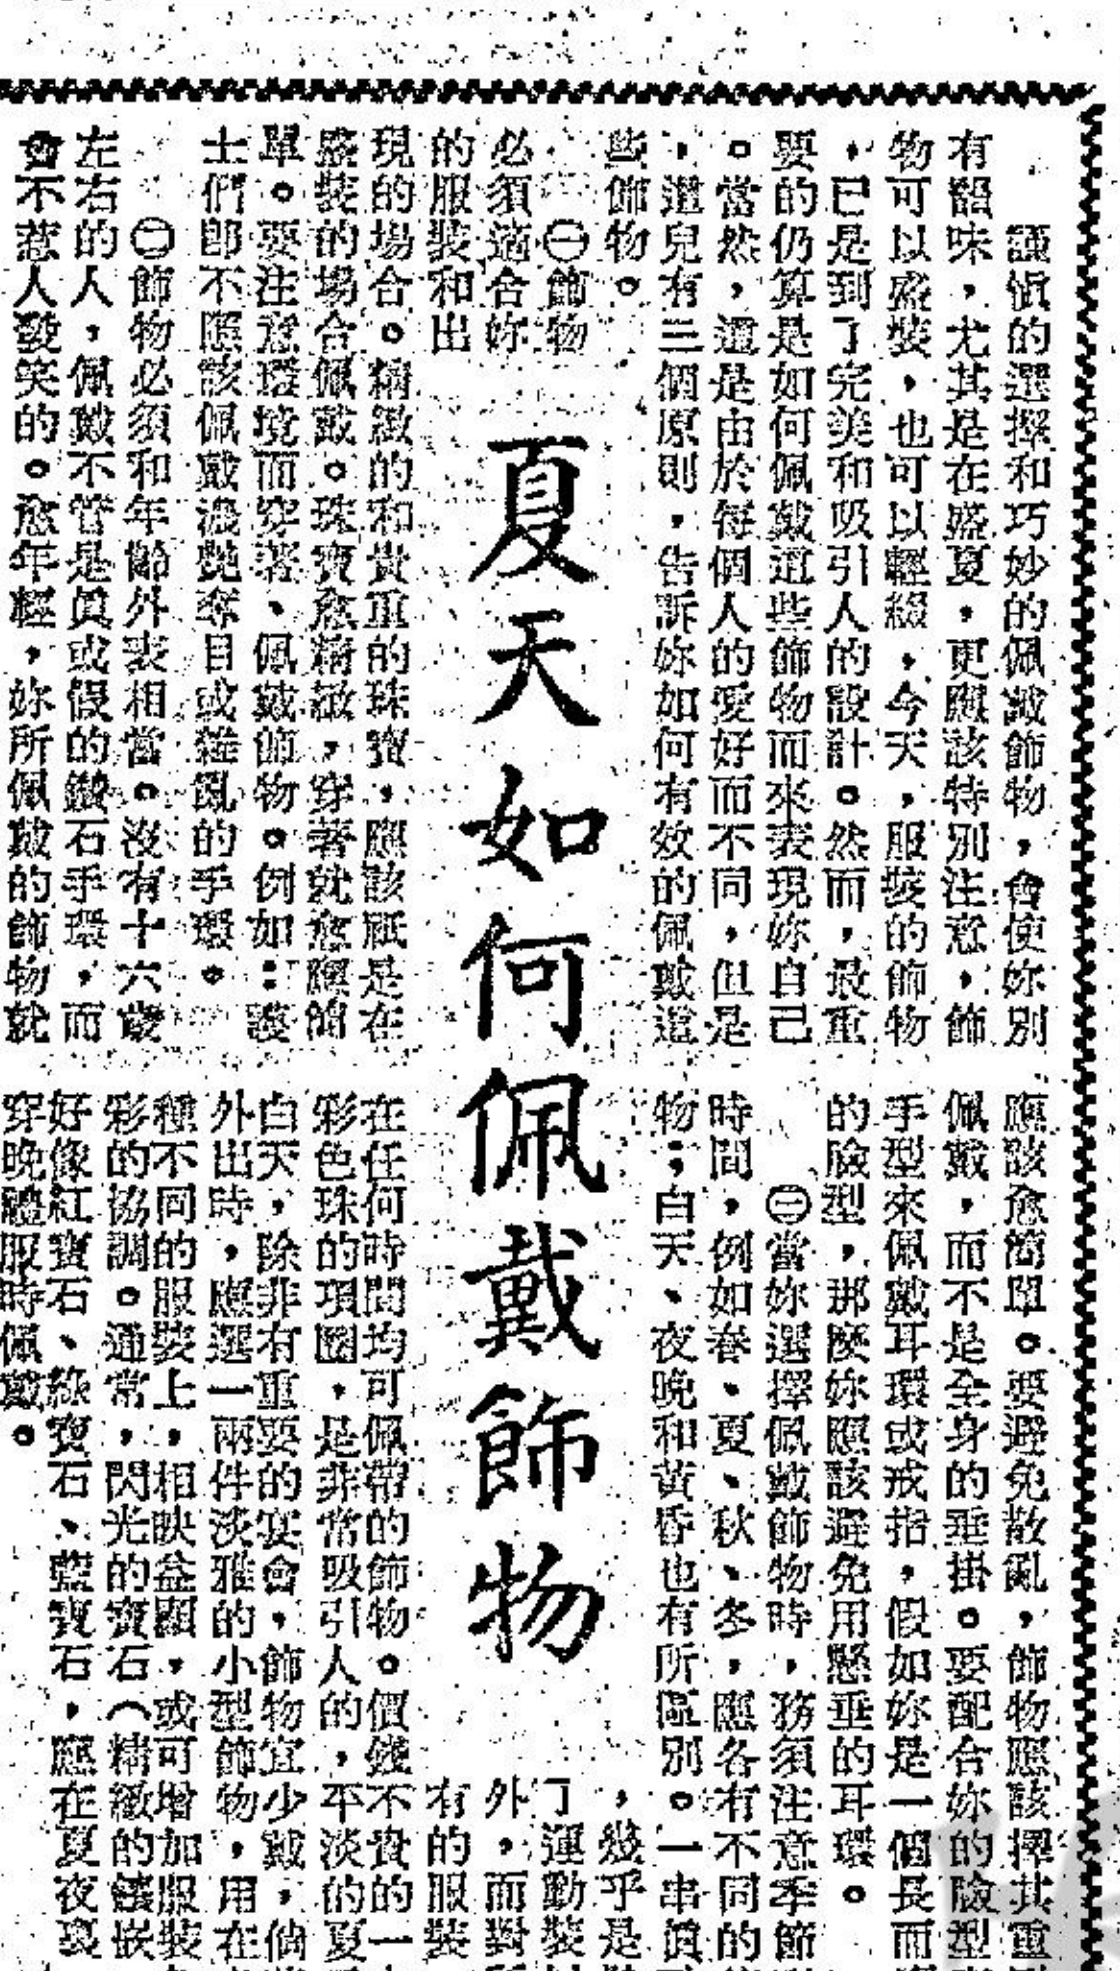 夏天如何佩戴飾物
謹慎的選擇和巧妙的佩戴飾物，會使妳別
有韻味，尤其是在盛夏，更應該特別注意，飾
物可以盛裝，也可以輕綴，今天，服裝的飾物
，已是到了完美和吸引人的設計。然而，最重
要的仍算是如何佩戴這些飾物而來表現妳自己
。當然，這是由於每個人的愛好而不同，但是
，這兒有三個原則，告訴妳如何有效的佩戴這
些飾物。
㊀飾物
必須適合妳
的服裝和出
現的場合。精緻的和貴重的珠寶，應該祇是在
盛裝的場合佩戴。珠寶愈精緻，穿著就愈應簡
單。要注意環境而穿著、佩戴飾物。例如：護
士們卽不應該佩戴濃艷奪目或雜亂的手環。
㊁飾物必須和年齡外表相當。沒有十六歲
左右的人，佩戴不管是眞或假的鑽石手環，而
會不惹人發笑的。愈年輕，妳所佩戴的飾物就
應該愈簡單。要避免散亂，飾物應該擇其重
佩戴，而不是全身的垂掛。要配合妳的臉型
手型來佩戴耳環或戒指，假如妳是一個長而
的臉型，那麼妳應該避免用懸垂的耳環。
㊂當妳選擇佩戴飾物時，務須注意季節
時間，例如春、夏、秋、冬，應各有不同的
物；白天、夜晚和黃昏也有所區別。一串眞
，幾乎是
了運動裝
外，而對
有的服裝
在任何時間均可佩帶的飾物。價錢不貴的一
彩色珠的項圈，是非常吸引人的，平淡的夏
白天，除非有重要的宴會，飾物宜少戴，倘
外出時，應選一兩件淡雅的小型飾物，用在
種不同的服裝上，相映益顯，或可增加服裝
彩的協調。通常，閃光的寶石（精緻的鑲嵌
好像紅寶石、綠寶石、藍寶石，應在夏夜裏
穿晚禮服時佩戴。